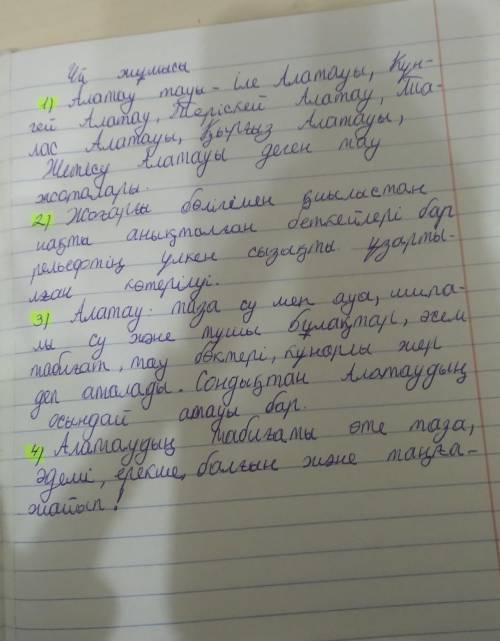 Үй жұмысы
1) Алатау тауы - Іле Алатауы, Күн-
гей Алатау, Теріскей Алатау, Та-
лас Алатауы, Қырғыз Алатауы,
Жетісу Алатауы деген тау
жоталары.
2) Жоғарғы бөлігімен қиыластан
нақты анықталған беткейлері бар
рельефтің үлкен сызықты ұзарты-
лған көтерілуі.
3) Алатау: таза су мен ауа, шипа-
лы су және тұшы бұлақтар, әсем
табиғат, тау бөктері, құнарлы жер
деп аталады. Сондықтан Алатаудың
осындай атауы бар.
4) Алатаудың табиғаты өте таза,
әдемі, ерекше, балғын және таңға-
жайып!